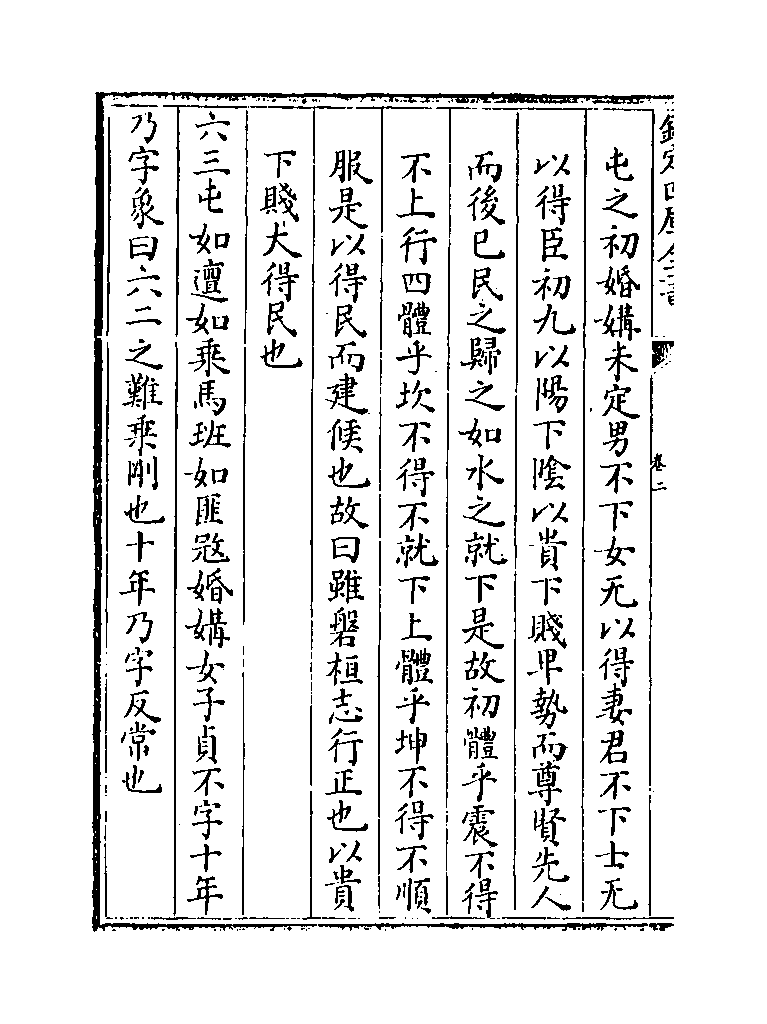 欽定四庫全書
卷二
屯之初婚媾未定男不下女无以得妻君不下士无
以得臣初九以陽下陰以貴下賤卑勢而尊賢先人
而後已民之歸之如水之就下是故初體乎震不得
不上行四體乎坎不得不就下上體乎坤不得不順
服是以得民而建侯也故曰雖磐桓志行正也以貴
下賤大得民也
六三屯如邅如乘馬班如匪寇婚媾女子貞不字十年
乃字象曰六二之難乘剛也十年乃字反常也